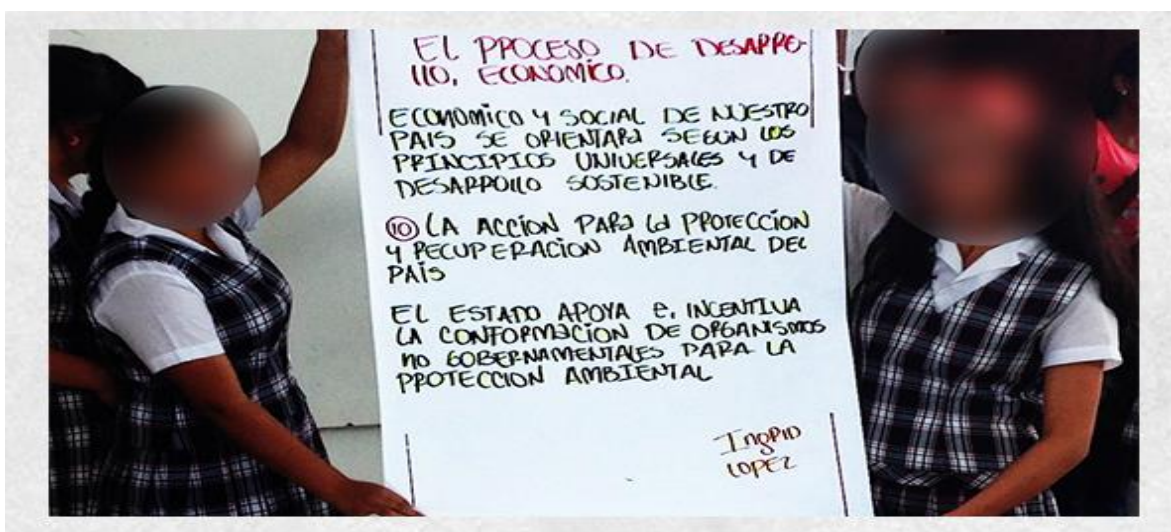 EL PROCESO DE DESARRO-
LLO, ECONOMICO.
ECONOMICO Y SOCIAL DE NUESTRO
PAIS SE ORIENTARA SEGUN LOS
PRINCIPIOS UNIVERSALES Y DE
DESARROLLO SOSTENIBLE.
10 LA ACCION PARA LA PROTECCION
Y RECUPERACION AMBIENTAL DEL
PAÍS
EL ESTADO APOYA e, INCENTIVA
LA CONFORMACION DE ORGANISMOS
NO GOBERNAMENTALES PARA LA
PROTECCION AMBIENTAL
INGRID
LOPEZ